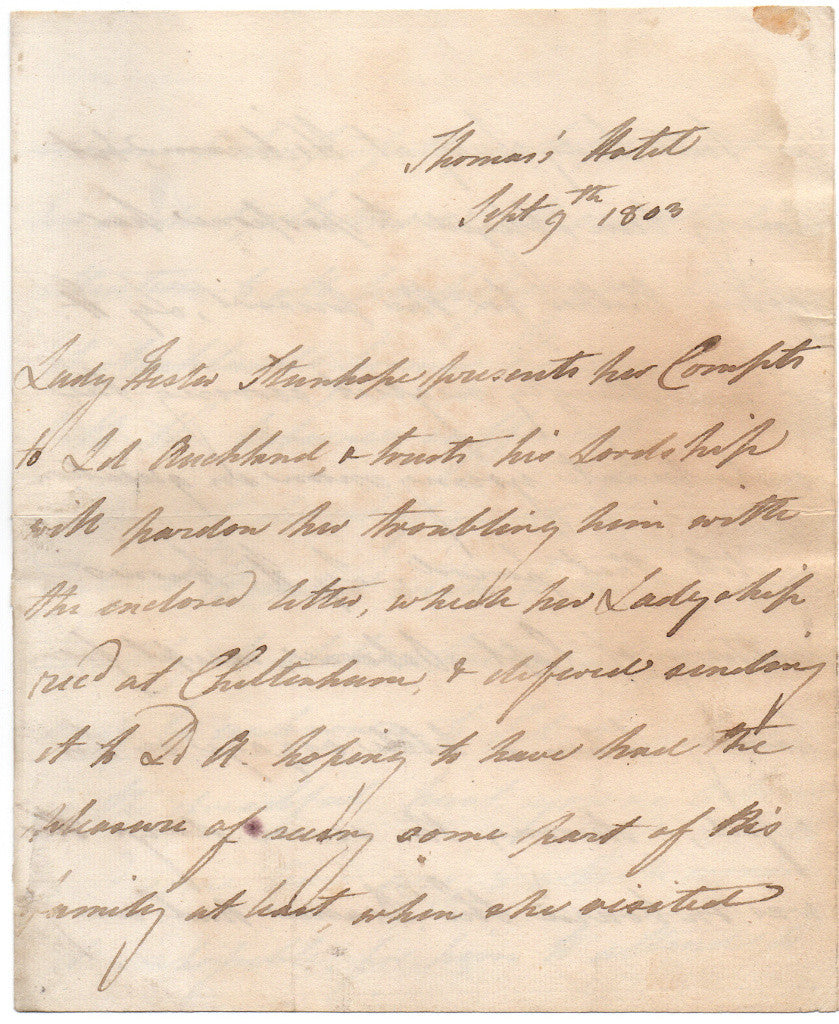 Thomas's Hotel
Sept 9th 1803
Lady Hester Stanhope presents her Compts
to Ld Auckland & trusts his Lordship
will pardon her troubling him with
the enclosed letter, which her Ladyship
recd at Cheltenham, & defered sending
it to Ld A. hoping to have had the
pleasure of seeing some part of his
family at least, when she visited